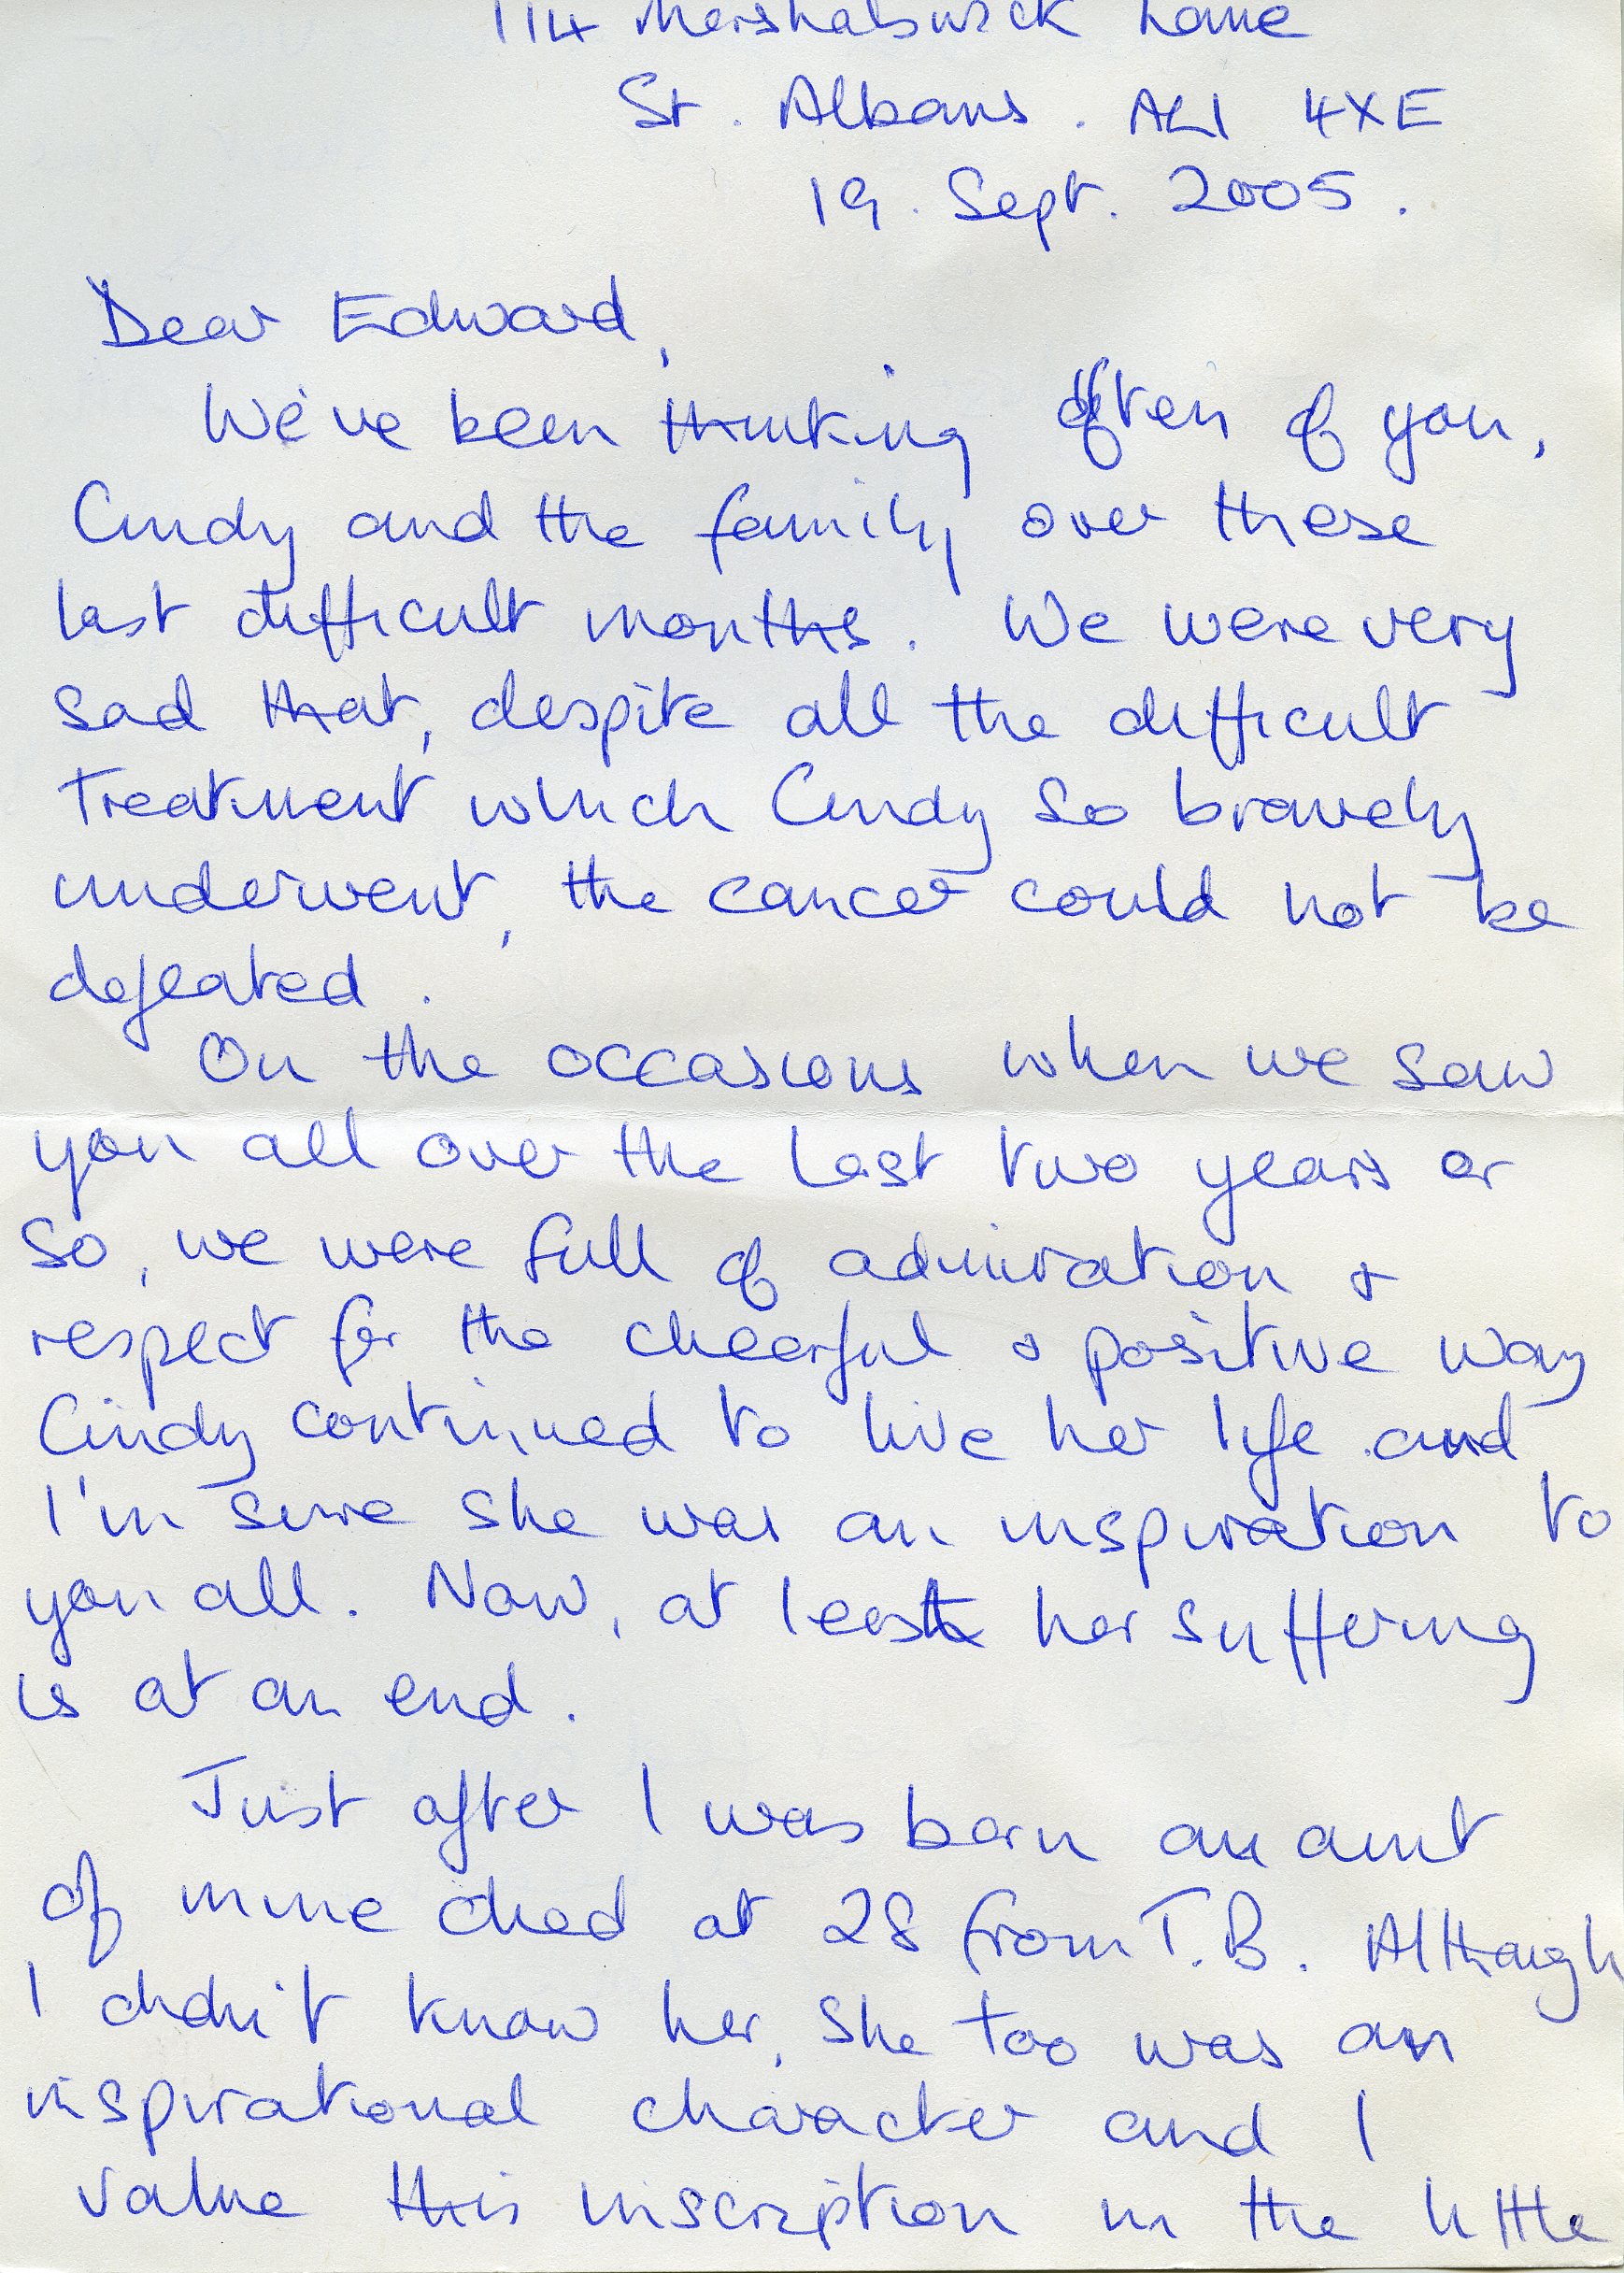 114 Marshalswick Lane
St. Albans. AL1 4XE
19. Sept. 2005.
Dear Edward,
We've been thinking often of you,
Cindy and the family over these
last difficult months. We were very
sad that, despite all the difficult
treatment which Cindy so bravely
underwent, the cancer could not be
defeated.
On the occasions when we saw
you all over the last two years or
so, we were full of admiration &
respect for the cheerful & positive way
Cindy continued to live her life and
I'm sure she was an inspiration to
you all. Now, at least her suffering
is at an end.
Just after I was born an aunt
of mine died at 28 from T.B. Although
I didn't know her, she too was an
inspirational character and I
value this inscription in the little